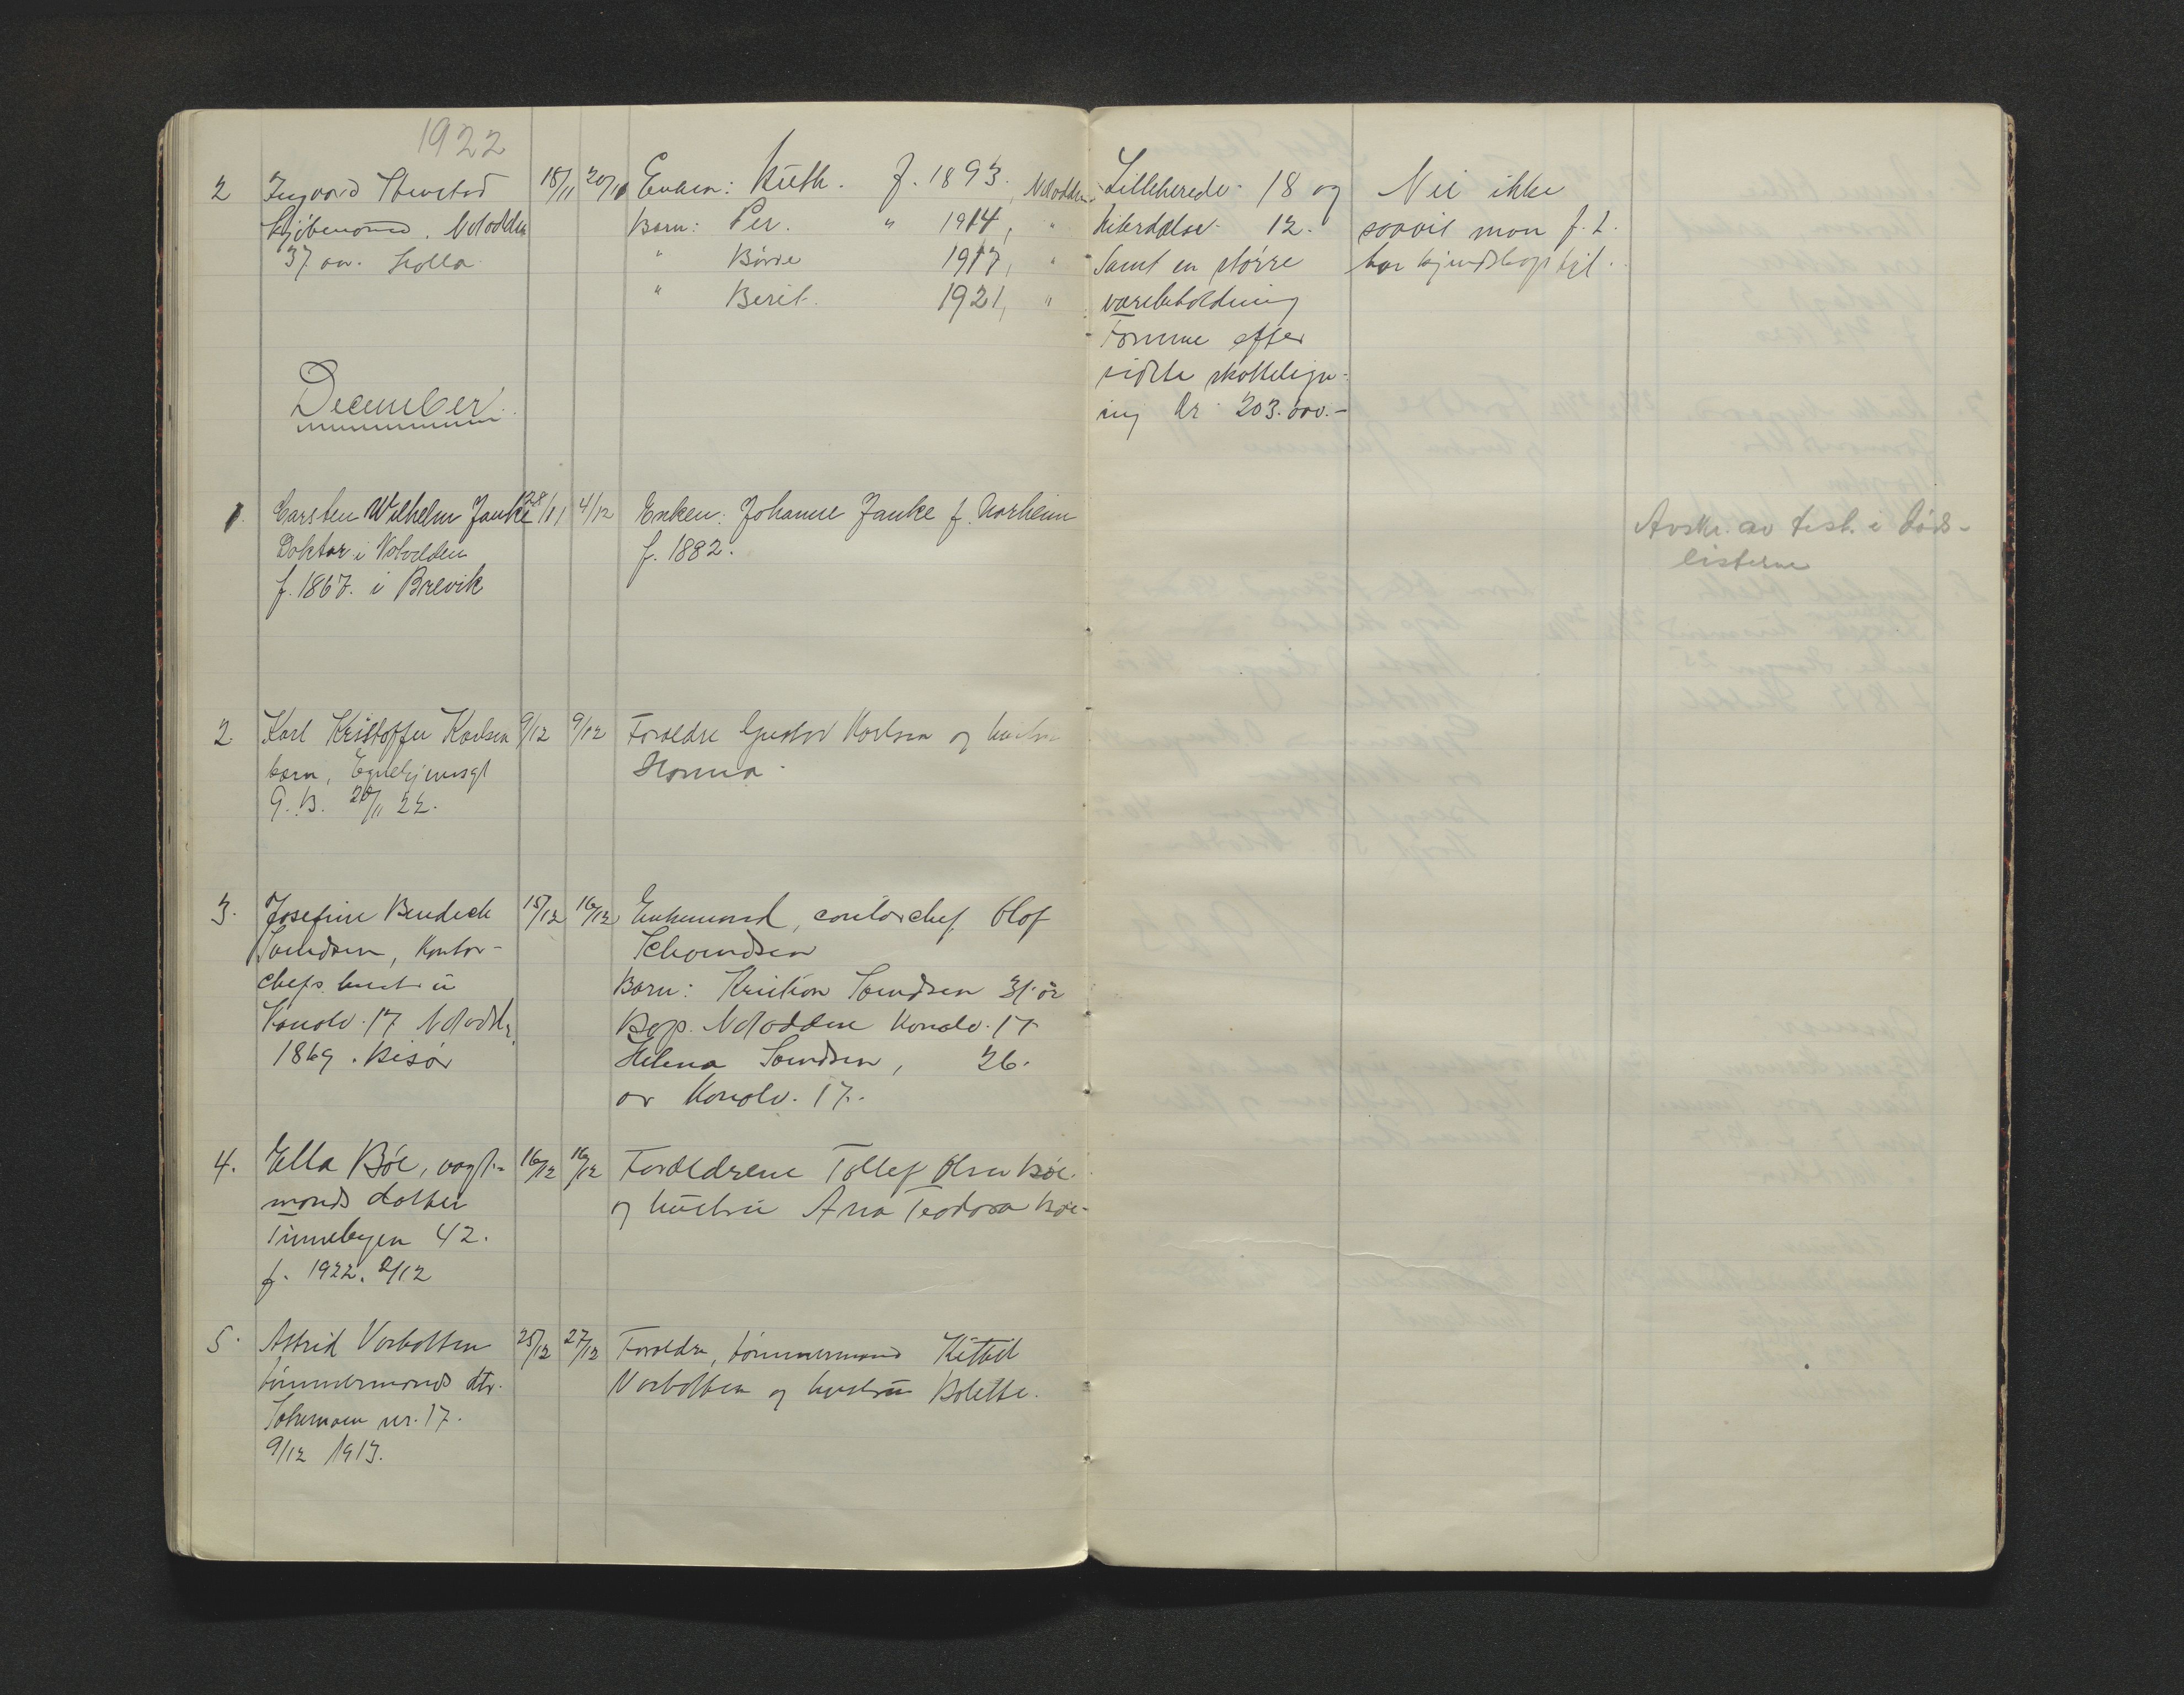 1922
2 Ingvard Stenstad 18/11 20/11 Enken: Ruth. f. 1893. Notodden
Kjøbmand. Notodden Barn: Per. " 1914, "
37 aar. Holla " Børre 1917, "
" Berit. 1921, "
Lilleherede 18 og
Hiterdalsv. 12.
Samt en større
varebeholdning
Formue efter
sidste skattelign-
ing kr. 203.000.-
Nei ikke
saavit man f. t.
har kjendskap til.
December.
1. Carsten Wilhelm Janke 28/11 4/12 Enken: Johanne Janke f. Norheim
Doktor i Notodden f. 1882.
f. 1867. i Brevik
Avskr. av test. i døds-
listerne
2. Karl Kristoffer Karlsen 9/12 9/12 Foreldre Gustav Karlsen og hustru
barn, Egnehjemsgt Hanna.
9. B. 20/11 22.
3. Josefine Bendeck 15/12 16/12 Enkemand, contorchef Olof
Svendsen, Kontor- Svendsen
chefs hustru Barn: Kristian Svendsen 31 år
Kanalv. 17 Notodden Bop. Notodden Kanalv. 17
1869. Risør Helena Svendsen, 26.
år Kanalv. 17.
4. Ella Bøe, vagt- 16/12 16/12 Foreldrene Tollef Olsen Bøe
mands datter og hustru Ana Teodora Bøe-
Tinnebyen 42.
f. 1922. 2/12
5. Astrid Vorbotten 25/12 27/12 Foreldre, tømmermand Kittil
tømmermands dtr. Vorbotten og hustru Bolette.
nr. 17.
9/12 1913.